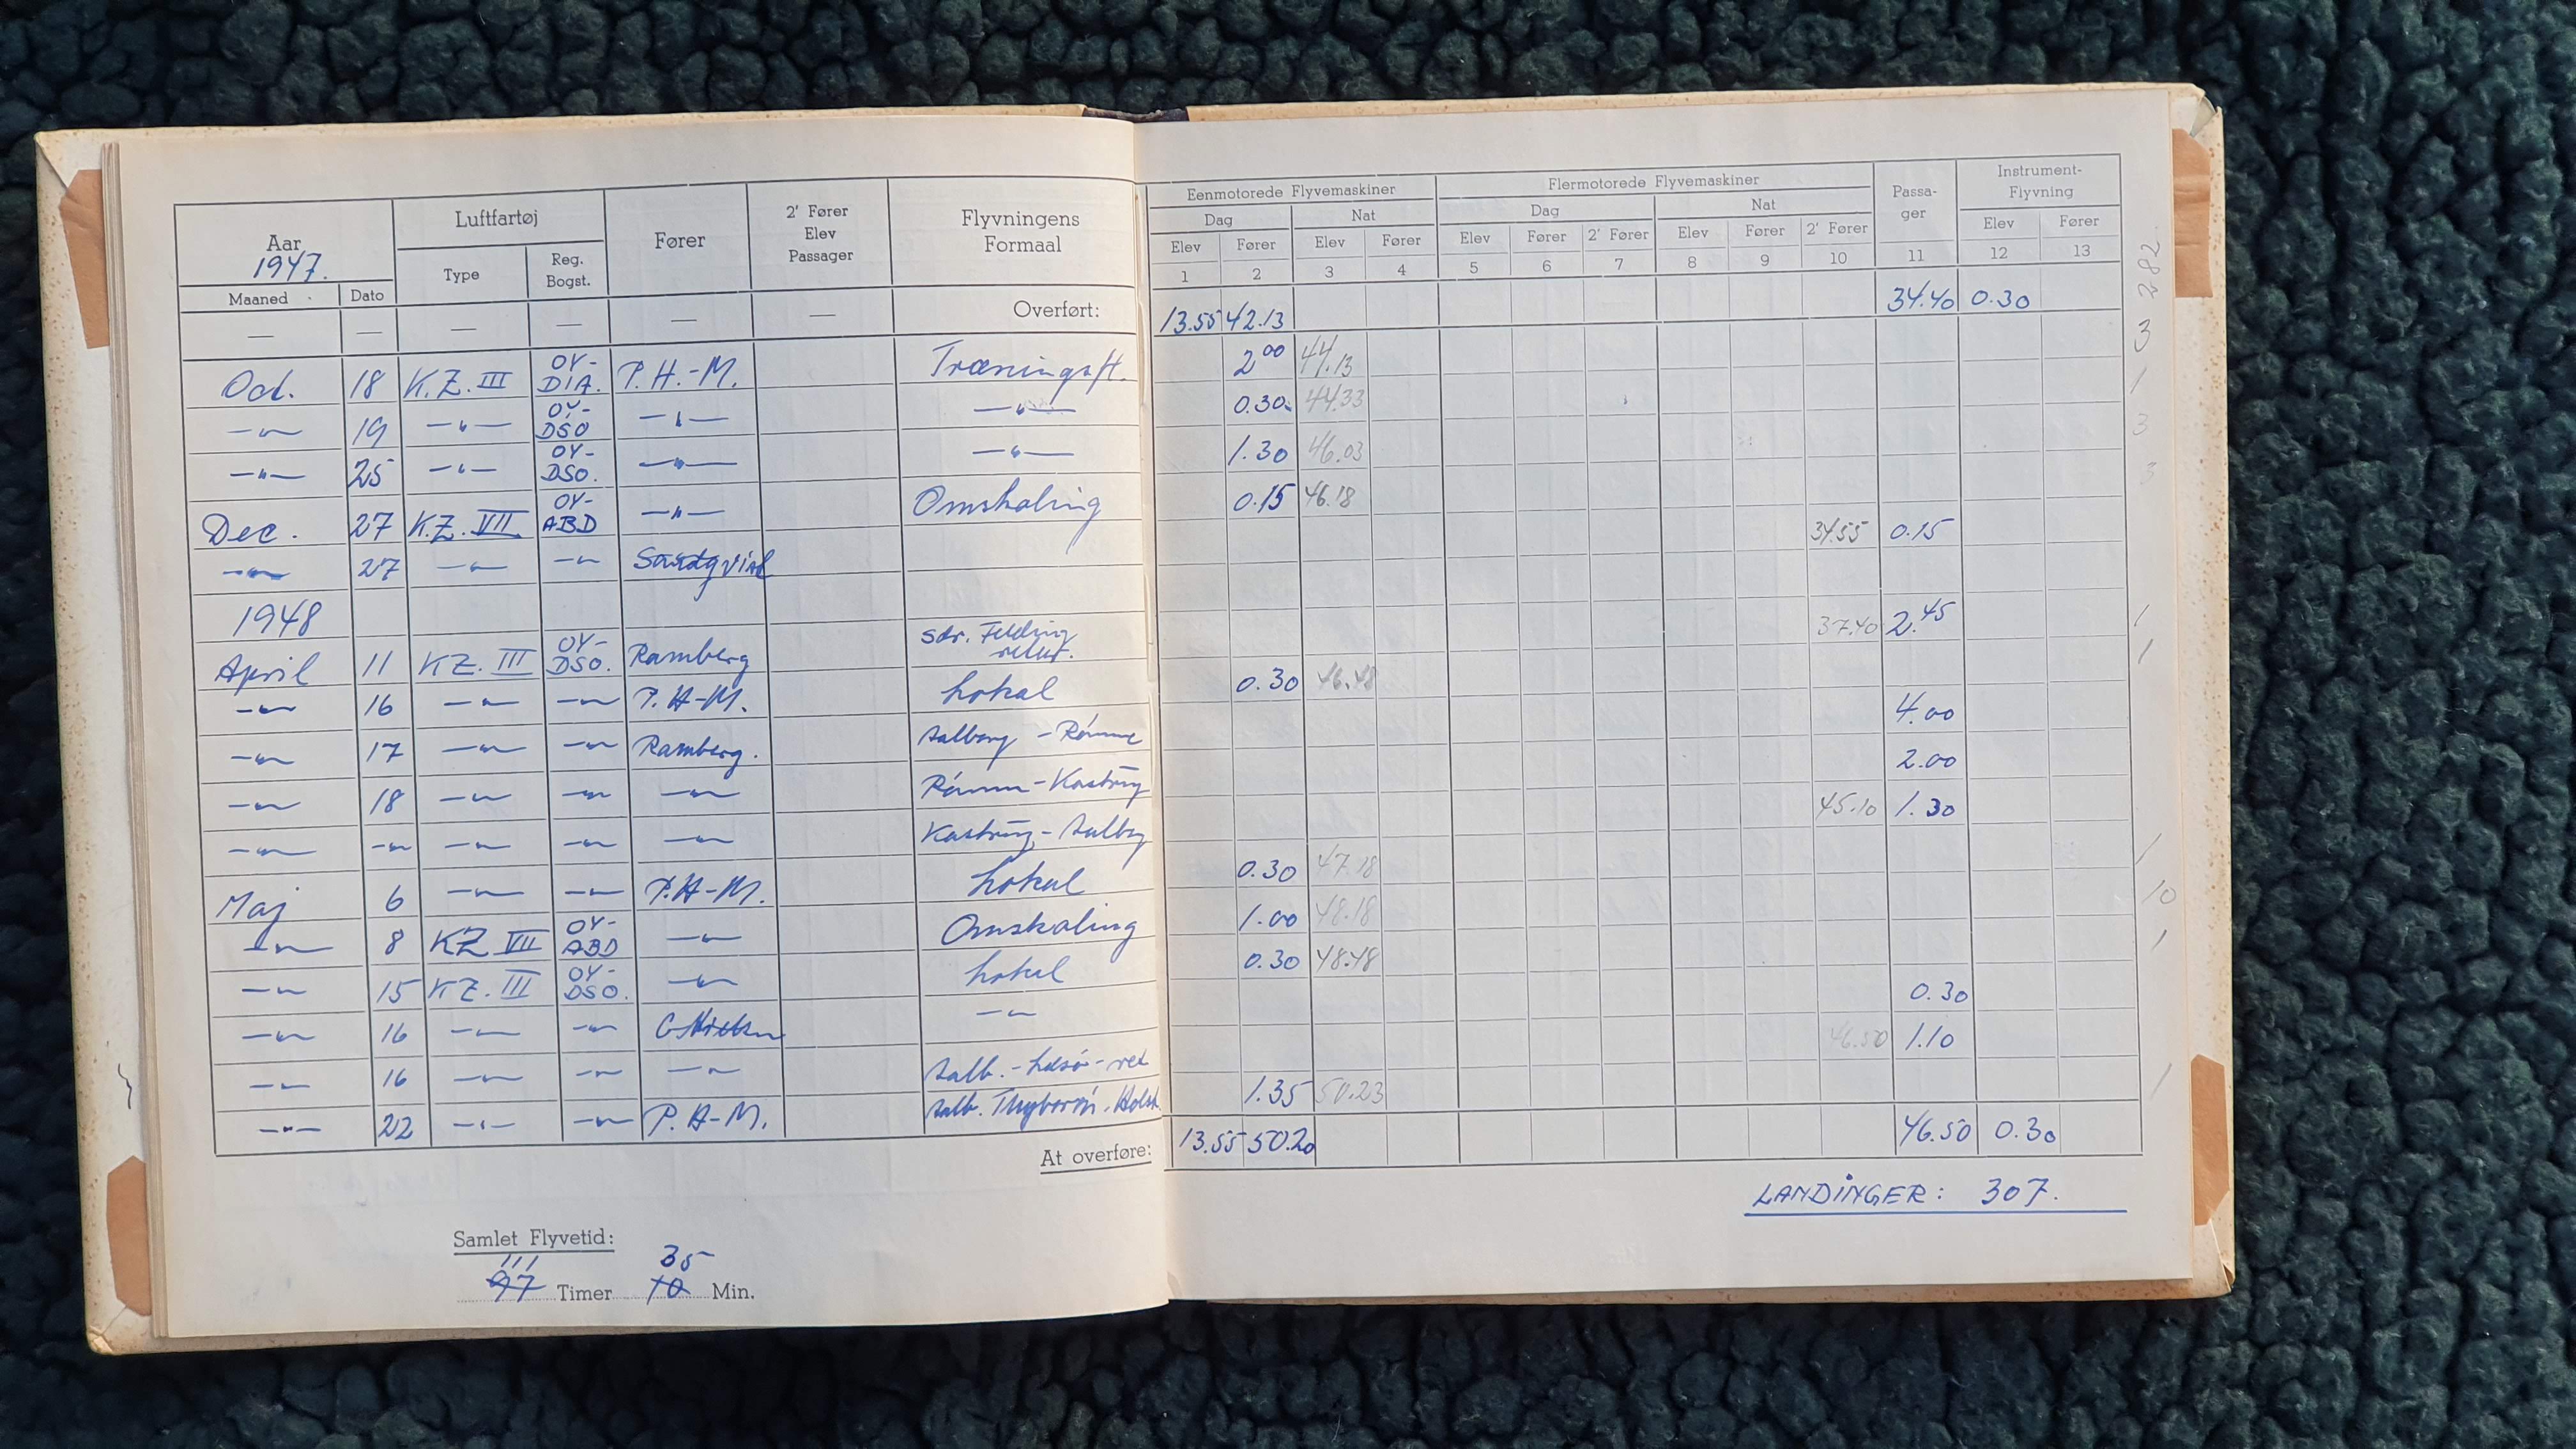 Aar
1947.
Maaned
Dato
Luftfartøj
Type
Reg.
Bogst.
Fører
2' Fører
Elev
Passager
Flyvningens
Formaal
Eenmotorede Flyvemaskiner
Dag Nat
Elev Fører Elev Fører
1 2 3 4
Flermotorede Flyvemaskiner
Dag Nat
Elev Fører 2' Fører Elev Fører 2' Fører
5 6 7 8 9 10
Passa-
ger
11
Instrument-
Flyvning
Elev Fører
12 13
— — — — — — Overført: 13.55 42.13 34.40 0.30 282
Oct. 18 K.Z. III OY-DIA. P.H.-M. Træningsfl. 2 00 44.13 3
—"— 19 —"— OY-DSO —"— —"— 0.30 44.33 1
—"— 25 —"— OY-DSO. —"— —"— 1.30 46.03 3
Dec. 27 K.Z. VII OY-ABD —"— Omskoling 0.15 46.18 3
—"— 27 —"— —"— Sandqvist 34.55 0.15
1948
April 11 KZ. III OY-DSO. Ramberg Sdr. Felding retur. 37.40 2.45
—"— 16 —"— —"— P.H-M. Lokal 0.30 46.48 1
—"— 17 —"— —"— Ramberg. Aalborg - Rönne 4.00
—"— 18 —"— —"— —"— Rönne - Kastrup 2.00
—"— —"— —"— —"— —"— Kastrup - Aalborg 45.10 1.30
Maj 6 —"— —"— P.H-M. Lokal 0.30 47.18 1
—"— 8 KZ VII OY-ABD —"— Omskoling 1.00 48.18 10
—"— 15 KZ. III OY-DSO. —"— Lokal 0.30 48.48 1
—"— 16 —"— —"— —"— 0.30
—"— 16 —"— —"— —"— Aalb. - Læsö - ret 46.50 1.10
—"— 22 —"— —"— P.H-M. Aalb. Thyborön - Holst. 1.35 50.23 1
At overføre: 13.55 50.20 46.50 0.30
LANDINGER: 307.
Samlet Flyvetid:
111 35
97 Timer 10 Min.